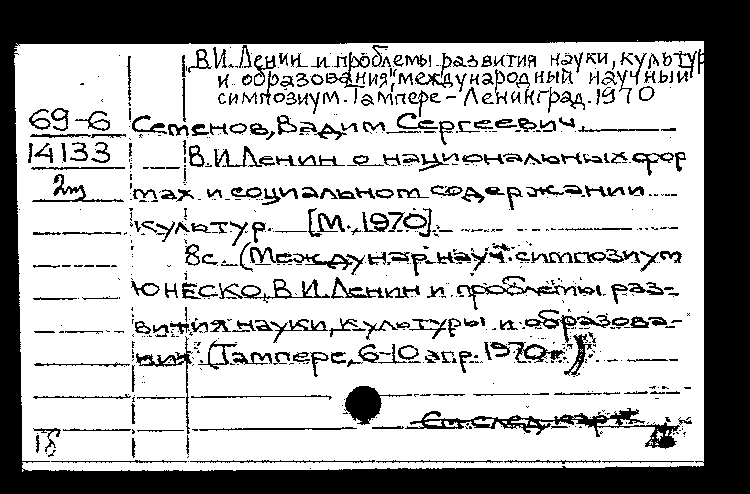 "В.И. Ленин и проблемы развития науки, культур
и образования", международный научный
симпозиум. Тампере - Ленинград. 1970
69-6 Семенов, Вадим Сергеевич.
14133 В.И. Ленин о национальных фор
2 экз мах и социальном содержании
культур. [М., 1970].
8с. (Междунар. науч. симпозиум
ЮНЕСКО "В.И. Ленин и проблемы раз-
вития науки, культуры и образова-
ния". (Тампере, 6-10 апр. 1970г.)
См след. карт